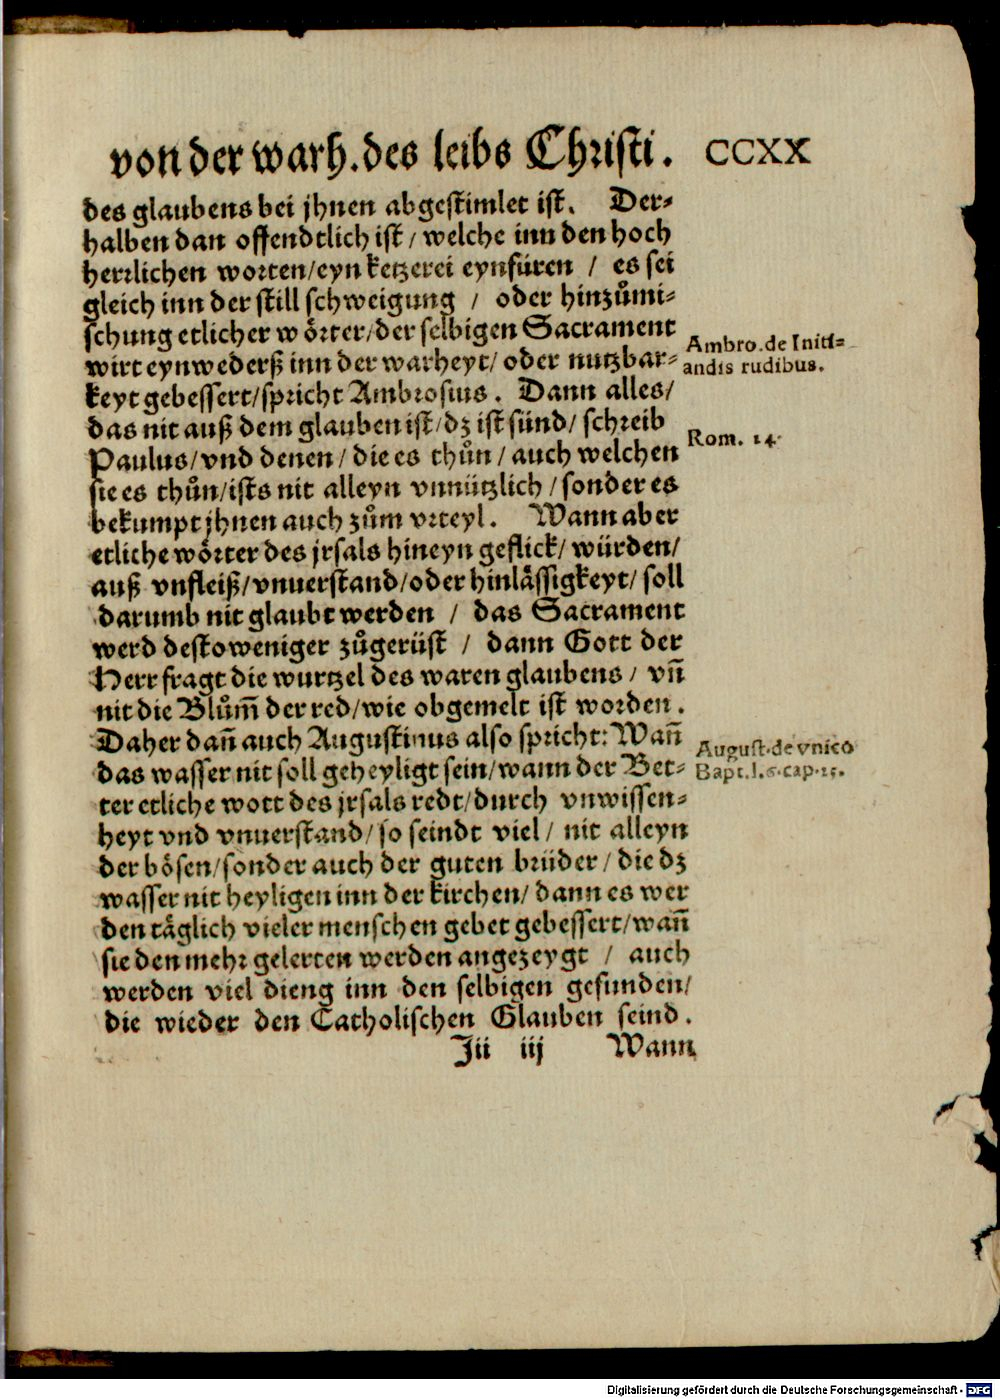 von der warh. des leibs Christi. CCXX
des glaubens bei jhnen abgestimlet ist. Der⸗
halben dan offendtlich ist / welche inn den hoch
herrlichen worten / eyn ketzerei eynfüren / es sei
gleich inn der still schweigung / oder hinzůmi⸗
schung etlicher wörter / der selbigen Sacrament
wirt eynwederß inn der warheyt / oder nutzbar⸗
keyt gebessert / spricht Ambrosius. Dann alles /
das nit auß dem glauben ist / dz ist sünd / schreib
Paulus / vnd denen / die es thůn / auch welchen
sie es thůn / ists nit alleyn vnnützlich / sonder es
bekumpt jhnen auch zům vrteyl. Wann aber
etliche wörter des jrsals hineyn geflick / würden /
auß vnfleiß / vnuerstand / oder hinlässigkeyt / soll
darumb nit glaubt werden / das Sacrament
werd destoweniger zůgerüst / dann Gott der
Herr fragt die wurtzel des waren glaubens / vn̄
nit die Blům̄ der red / wie obgemelt ist worden.
Daher dan̄ auch Augustinus also spricht: Wan̄
das wasser nit soll geheyligt sein / wann der Bet⸗
ter etliche wott des jrsals redt / durch vnwissen⸗
heyt vnd vnuerstand / so seindt viel / nit alleyn
der bösen / sonder auch der guten brüder / die dz
wasser nit heyligen inn der kirchen / dann es wer
den täglich vieler menschen gebet gebessert / wan̄
sie den mehr gelerten werden angezeygt / auch
werden viel dieng inn den selbigen gefunden /
die wieder den Catholischen Glauben seind.
Jii iij Wann
Ambro. de Initi⸗
andis rudibus.
Rom. 14.
August. de vnico
Bapt. l. 6. cap. 25.
Digitalisierung gefördert durch die Deutsche Forschungsgemeinschaft - DFG